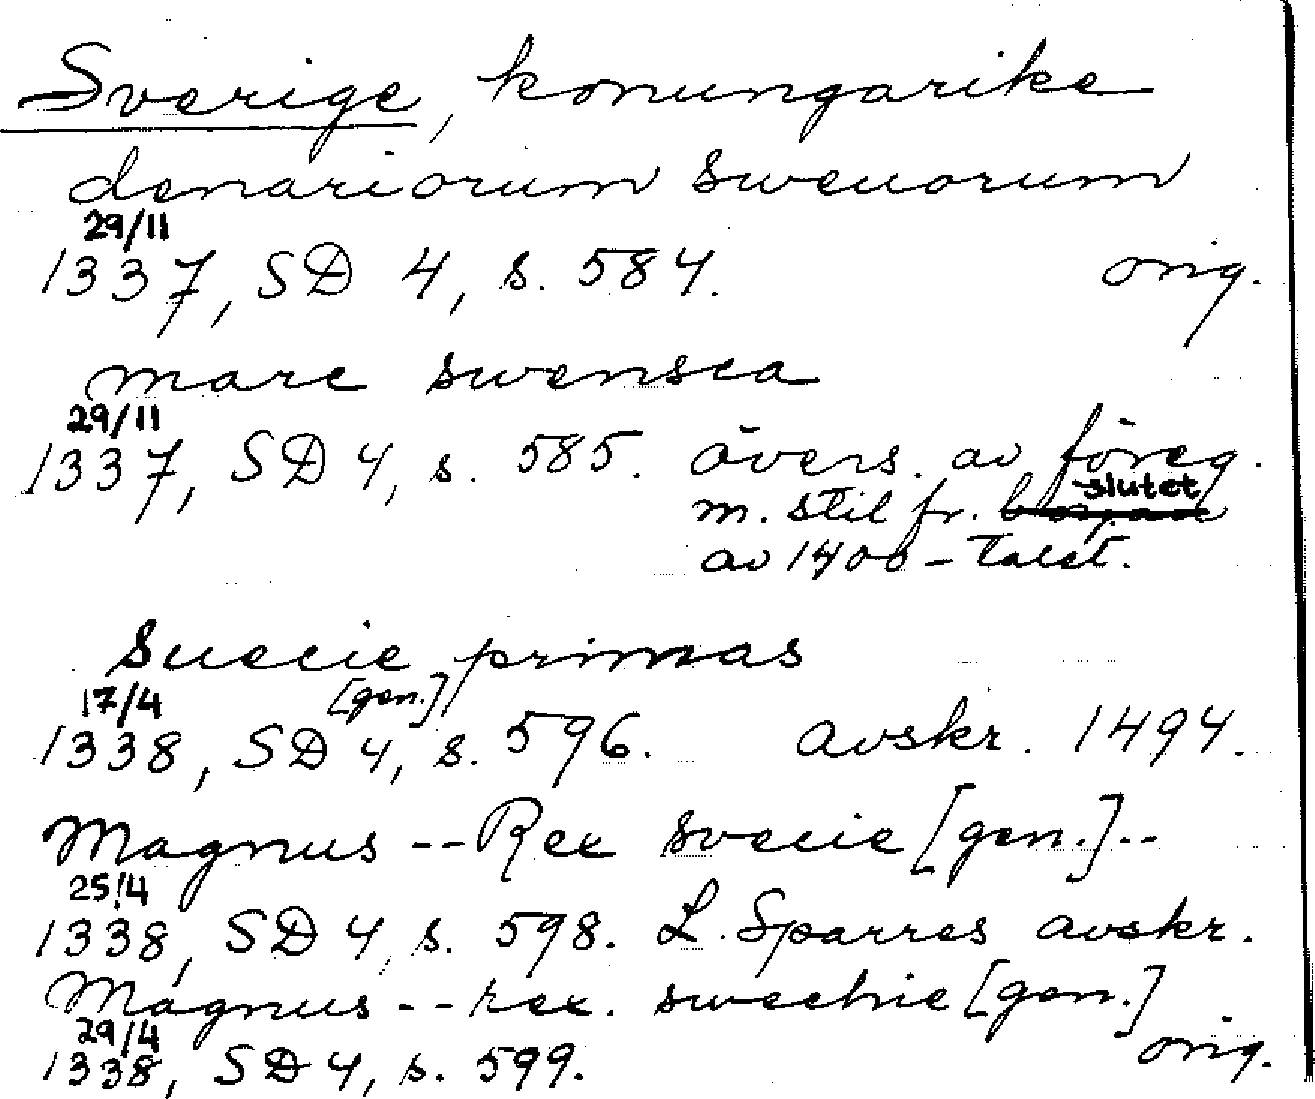 Sverige, konungarike
denariorum swenorum
29/11
1337, SD 4, s. 584. orig.
mare swensca
29/11
1337, SD 4, s. 585. övers. av föreg.
slutet
m. stil fr.
av 1400-talet.
Suecie primas
17/4 [gen.]
1338, SD 4, s. 596. avskr. 1494.
Magnus -- Rex svecie [gen.] --
25/4
1338, SD 4, s. 598. L. Sparres avskr.
Magnus -- rex. swechie [gen.]
29/4
1338, SD 4, s. 599. orig.